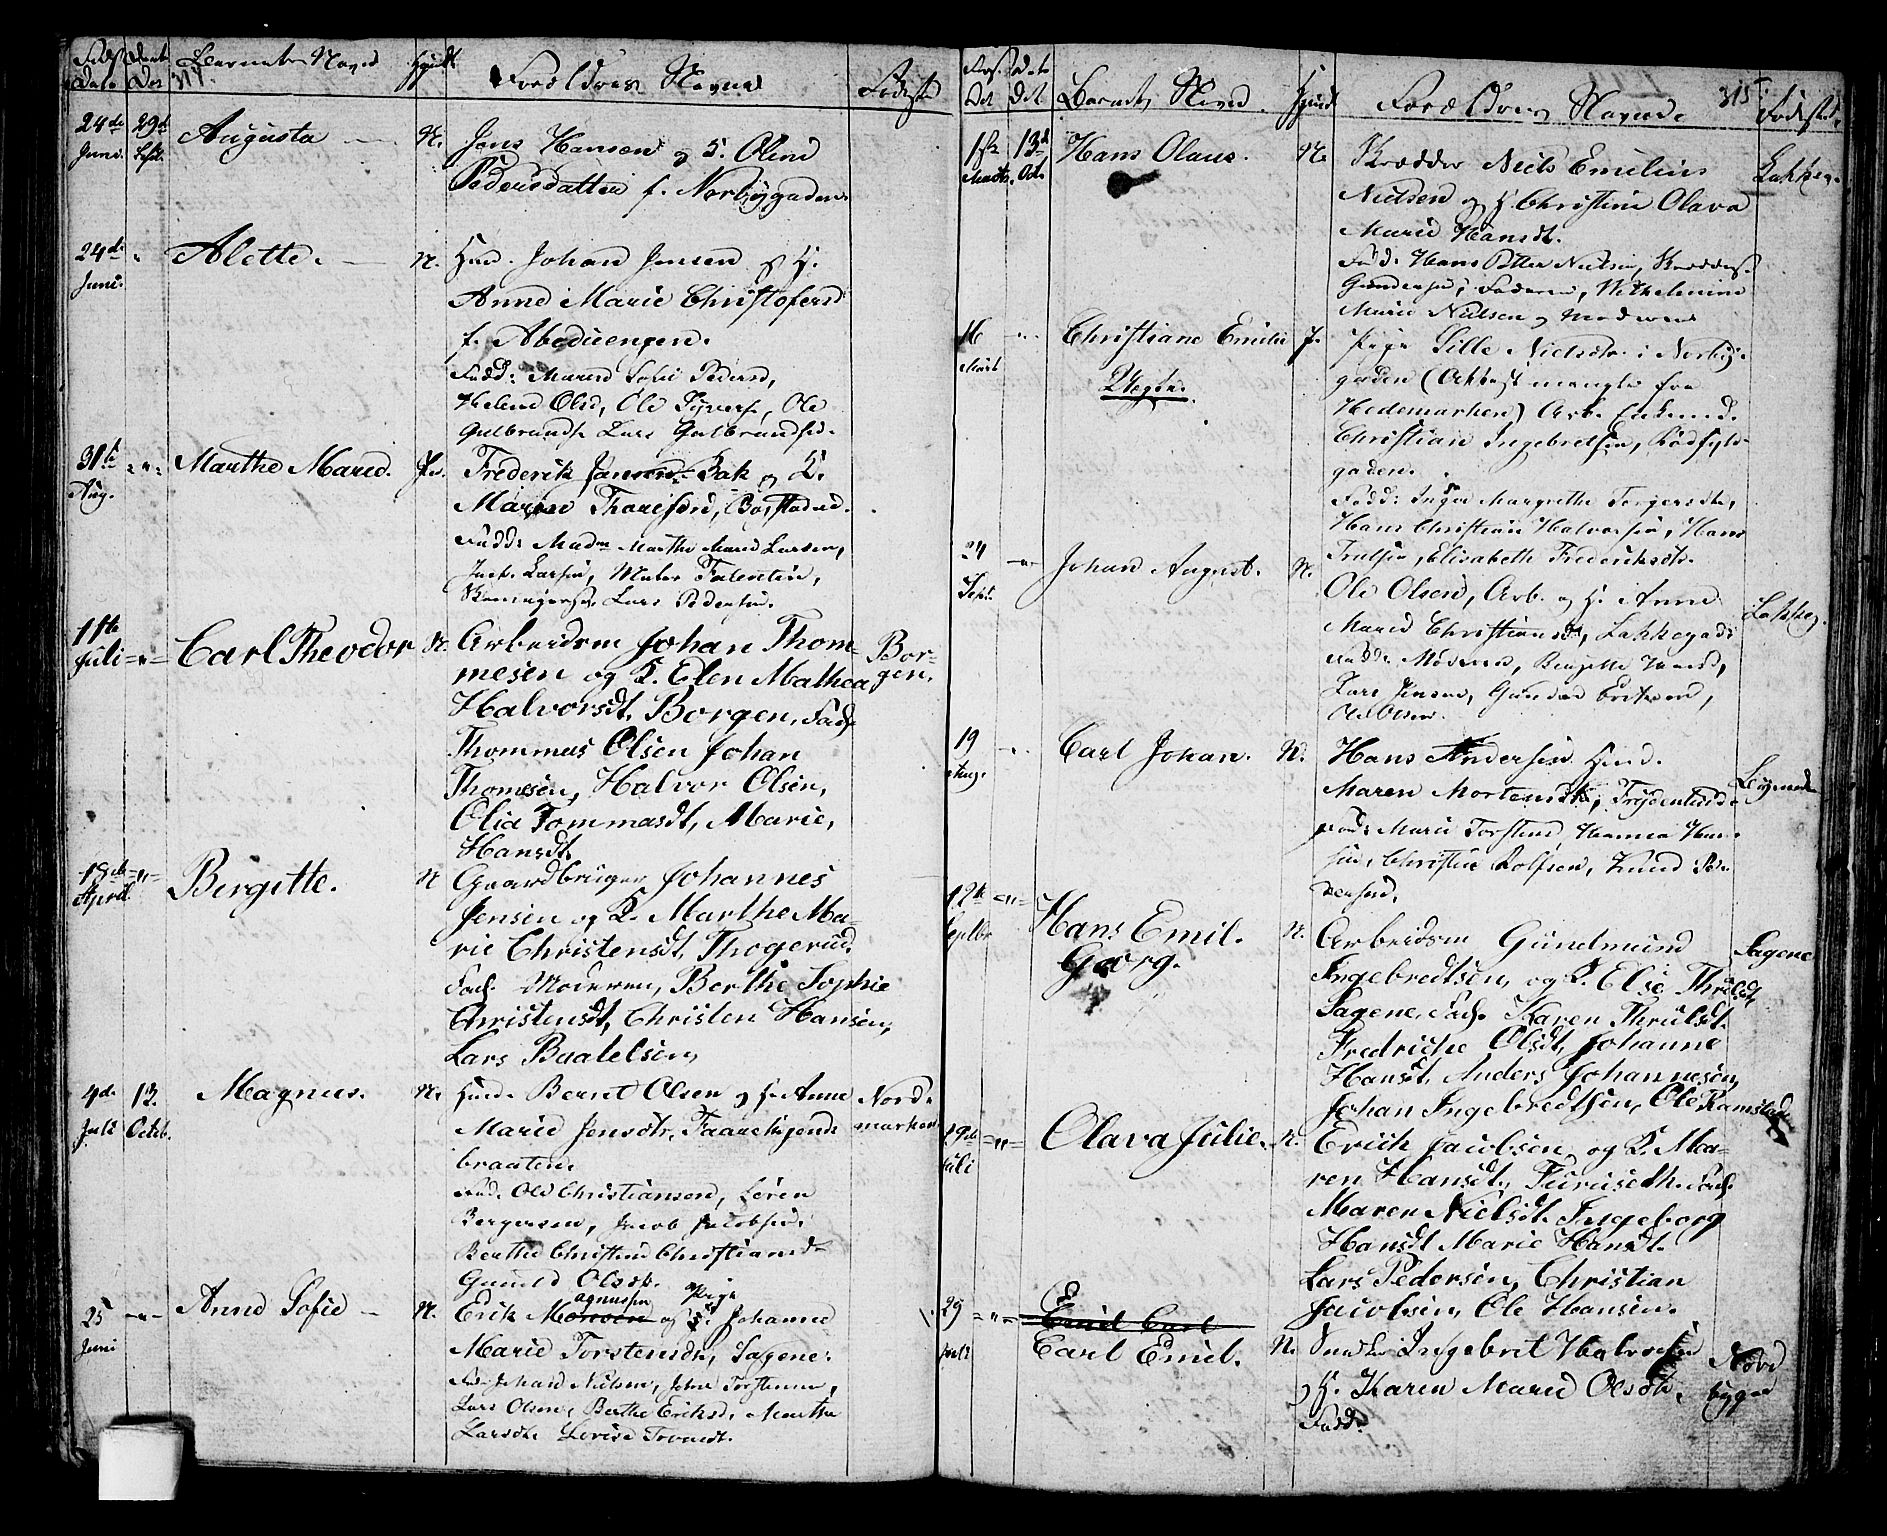 Føds Dato Daab Dag Barnets Navn Hjud Forældres Navne Fødested
314.
24de Juni. 29de Septb. Augusta N. Jens Hansen og K. Oline
Pedersdatter f. Norbygaden.
24de Juni. " Alette. N. Huus. Johan Jensen og H.
Anne Marie Christofersd
f. Abedieengen.
Fadd: Maren Sofie Pedersd,
Helene Olsd, Ole Syvers, Ole
Gulbrands Lars Gulbrandsen.
31te Aug. " Marthe Marie. J. Frederik Jansen Bak og K.
Maren
Fadd: Madm Marthe Marie Larsen,
Lars Pedersen.
11te Juli " Carl Theodor N. Arbeidsm Johan Thom-
Bor-
mesen og K. Elen Mathea
gen.
Halvorsdt, Borgen, Fadf
Thommas Olsen Johan
Thomesen, Halvor Olsen,
Olia Tommasdt, Marie,
Hansdt.
18de April " Birgitte. N Gaardbruger Johannes
Jensen og K. Marthe Ma-
rie Christensdt, Thogerud.
Fadf. Moderen, Berthe Sophie
Christensdt, Christen Hansen,
Lars Baatelsen,
4de Juli 13. Octob. Magnus. N. Huus. Bernt Olsen og H. Anne Nord-
Marie Jensdtr, marken
braaten
Fad. Ole Christiansen, Søren
Bergersen, Jacob Jacobsen.
Berthe Christine Christiansd
Gunild Olsdt.
25 Juni " Anne Sofie N. Erik Monsen agnussen og Pige Johanne
Marie Torstensdtr, Sagene.
Fad. Johan Nielsen, Johan Torstensen,
Lars Olsen, Berthe Eriksd. Marthe
Larsdt Lovise
Føds. Dat Dab. Dat Barnets Navn. Hjud Forældres Navne. 315 Fødested.
1ste Marts. 13de Oct. Hans Olaus. N. Skrædder Niels Emilius Lakkeg.
Nielsen og H. Christine Olava
Marie Hansdt.
Fad. Hans Petter Nielsen, Skrædders.
Gundersen, Faderen, Wilhelmine
Marie Nielsen og Moderen
16 Marts " Christiane Emilie J. Pige Sille Nielsdtr. i Norby-
Uægte.
gaden (Attest mangler fra
Hedemarken) Arb. Enkemd.
Christian Ingebretsen, Rødfyld-
gaden.
Fadd: Inger Margrethe Torgersdtr,
Hans Christian Halvorsen, Hans
Trulsen, Elisabeth Frederiksdtr.
24 Sept. " Johan August. N. Ole Olsen, Arb. og H. Anne
Marie Christiansdt, Lakkegad: Lakkeg.
Fadd: Moderen,
Lars Jensen,
Ole Olsen.
19 Aug. " Carl Johan. N. Hans Andersen Huus.
Maren Mortensdtr,
Fad: Marie Torstens, Hanna Han-
sen, Christine Rolfsen, Knud Pe-
dersen.
12te Septbr " Hans Emil. N. Arbeidsm Gundmund Sagene
Georg.
Ingebredtsen, og K. Else Thrulsdt,
Sagene, Fadf. Karen Thrulsdt.
Fredriche Olsdt, Johanne
Hansdt, Anders Johannesen,
Johan Ingebredtsen, Ole Ramstad
19de Juli " Olava Julie. N. Erich Jacobsen, og K. Ma-
ren Hansdt, Furuseth. Fadf.
Maren Nielsdt. Ingeborg
Hansdt Marie Hansdt.
Lars Pedersen, Christian
Jacobsen, Ole Hansen.
29 Juli " Emil Carl
Carl Emil. N. Snedker Ingebret Halvorsen Nord
og H. Karen Marie Olsdtr, bygad
Fadd.